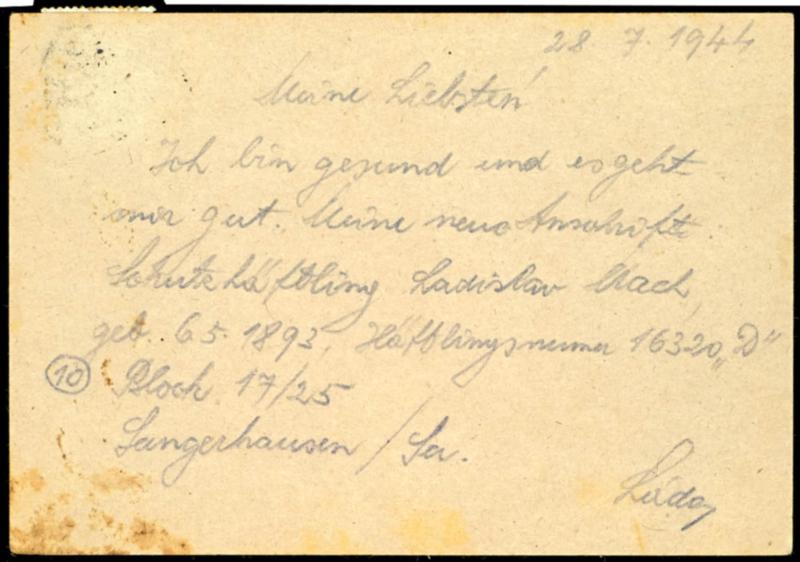 28. 7. 1944
Meine Liebsten!
Ich bin gesund und es geht
mir gut. Meine neue Anschrift:
Schutzhäftling Ladislav Mach,
geb. 6.5. 1893, Häftlingsnumer 16320 „D"
(10) Block 17/25
Sangerhausen / Sa.
Láďa